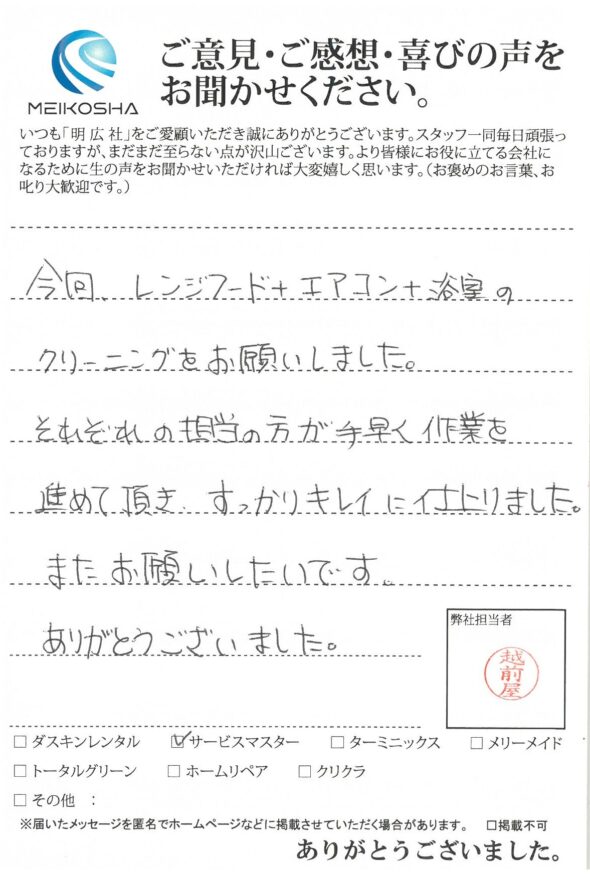 MEIKOSHA
ご意見・ご感想・喜びの声を
お聞かせください。
いつも「明広社」をご愛顧いただき誠にありがとうございます。スタッフ一同毎日頑張っ
ておりますが、まだまだ至らない点が沢山ございます。より皆様にお役に立てる会社に
なるために生の声をお聞かせいただければ大変嬉しく思います。(お褒めのお言葉、お
叱り大歓迎です。)
今回、レンジフード+エアコン+浴室の
クリーニングをお願いしました。
それぞれの担当の方が手早く作業を
進めて頂き、すっかりキレイに仕上りました。
またお願いしたいです。
ありがとうございました。
弊社担当者
越前屋
□ダスキンレンタル ☑サービスマスター □ターミニックス □メリーメイド
□トータルグリーン □ホームリペア □クリクラ
□その他 :
※届いたメッセージを匿名でホームページなどに掲載させていただく場合があります。 □掲載不可
ありがとうございました。